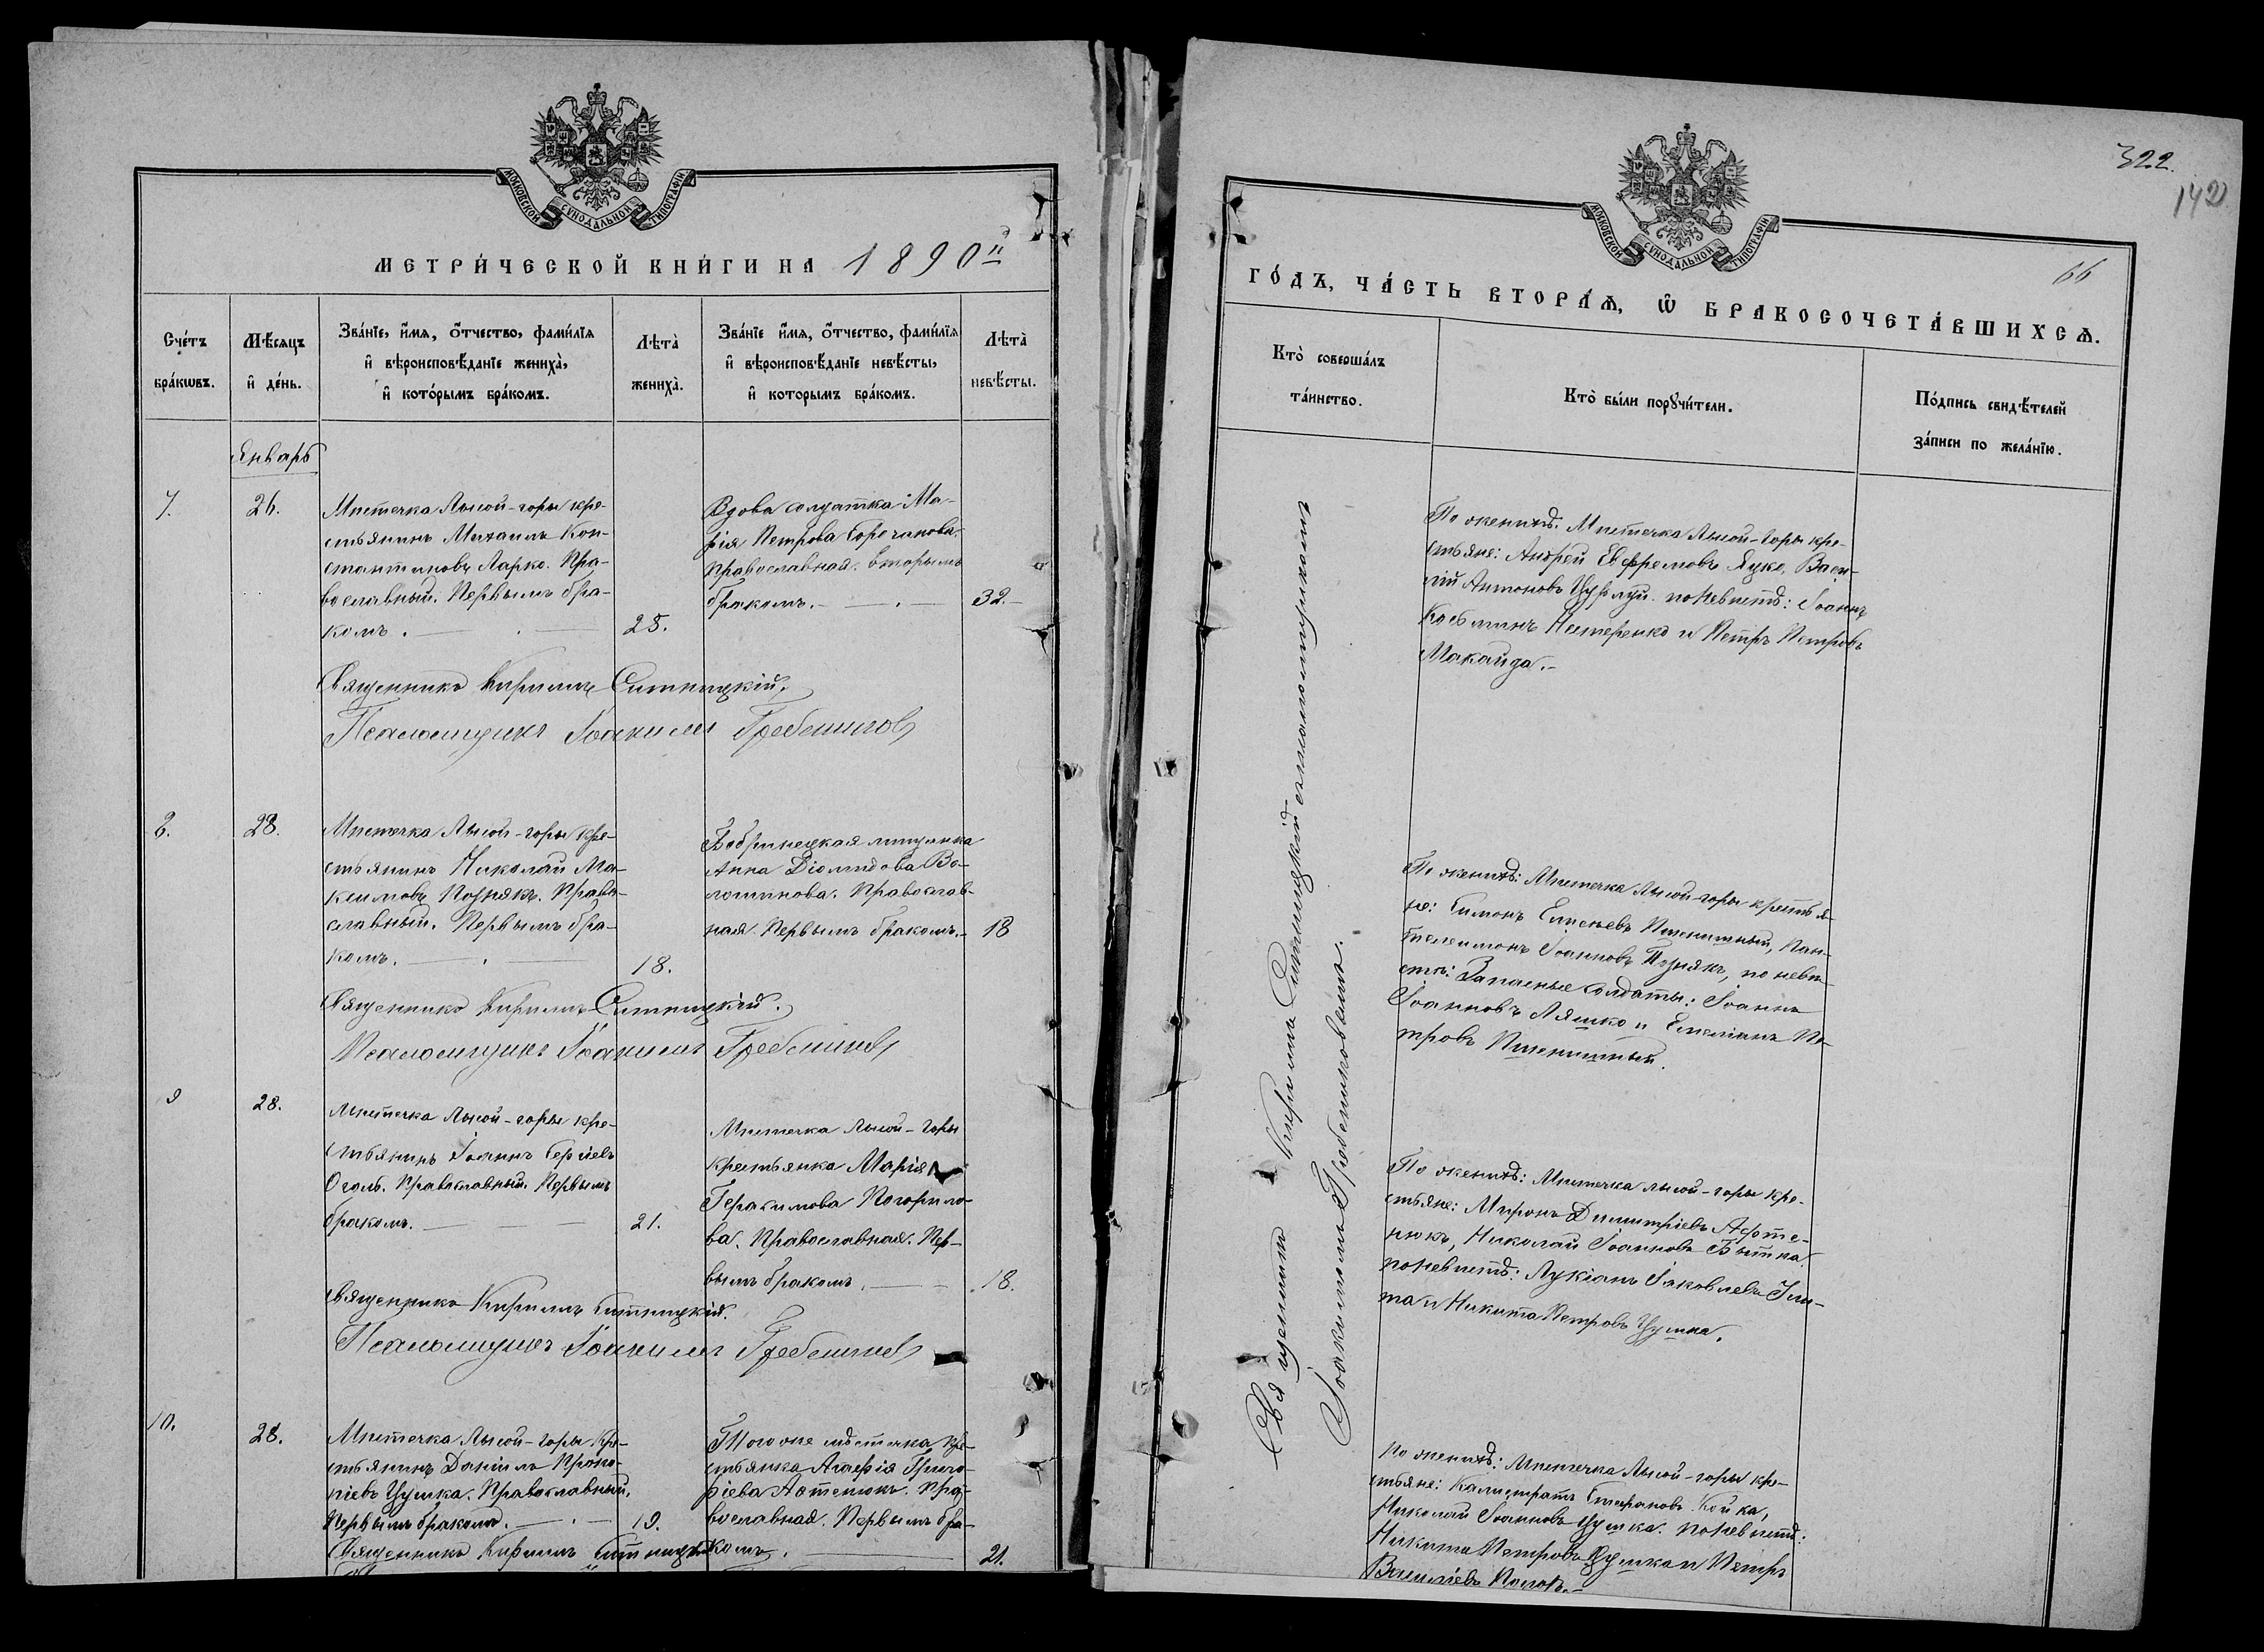 МОСКОВСКОЙ СѴНОДАЛЬНОЙ ТИПОГРАФІИ
МЕТРИ́ЧЕСКОЙ КНИ́ГИ НА 1890й
Сче́тъ
бра́кѡвъ.
Мѣ́сяцъ
и҆ де́нь.
Зва́нїе, и҆́мя, ѻ҆́тчество, фами́лїя
и҆ вѣроисповѣ́данїе жениха̀,
и҆ кото́рымъ бра́комъ.
Лѣта̀
жениха̀.
Зва́нїе и҆́мя, ѻ҆́тчество, фами́лїя
и҆ вѣроисповѣ́данїе невѣ́сты,
и҆ которымъ бра́комъ.
Лѣта̀
невѣ́сты.
Январь
7.
26.
Мѣстечка Лысой-горы кре-
стьянинъ Михаилъ Кон-
стантиновъ Ларко. Пра-
вославный. Первымъ бра-
комъ.
25.
Вдова солдатка Ма-
рія Петрова
Православная. Вторымъ
бракомъ.
32.
Священникъ Кириллъ Ситницкій.
Псаломщикъ Іоакимъ Гребениковъ
8.
28.
Мѣстечка Лысой-горы кре-
стьянинъ Николай Ма-
ксимовъ Познякъ. Право-
славный. Первымъ бра-
комъ.
18.
Бобринецкая мѣщанка
Анна Діомидова Во-
лошинова. Православ-
ная. Первымъ бракомъ.
18
Священникъ Кириллъ Ситницкій.
Псаломщикъ Іоакимъ Гребениковъ
9
28.
Мѣстечка Лысой-горы кре-
стьянинъ Іоаннъ Сергіевъ
Оголь. Православный. Первымъ
бракомъ.
21.
Мѣстечка Лысой-Горы
крестьянка Марія
Герасимова Погорило-
ва. Православная. Пер-
вымъ бракомъ.
18.
Священникъ Кириллъ Ситницкій.
Псаломщикъ Іоакимъ Гребениковъ
10.
28.
Мѣстечка Лысой-Горы Кре-
стьянинъ Даніилъ Проко-
піевъ Цушка. Православный.
Первымъ бракомъ.
19.
Тогоже мѣстечка кре-
стьянка Агафія Григо-
ріева Артенюкъ. Пра-
вославная. Первымъ бра-
комъ.
21.
Священникъ Кириллъ Ситницкій
322.
142
66
МОСКОВСКОЙ СѴНОДАЛЬНОЙ ТИПОГРАФІИ
ГО́ДЪ, ЧА́СТЬ ВТОРА́Ѧ, Ѡ҆ БРАКОСОЧЕТА́ВШИХСѦ.
Кто̀ соверша́лъ
та́инство.
Кто̀ бы́ли порꙋчи́тели.
По́дпись свидѣ́телей
за́писи по жела́нїю.
Священникъ Кириллъ Ситницкій съ псаломщикомъ
Іоакимомъ Гребениковымъ.
По женихѣ: Мѣстечка Лысой-Горы кре-
стьяне: Андрей Евфремовъ Яцко, Васи-
лій Антоновъ поневѣстѣ: Іоаннъ
Косьминъ Нестеренко и Петръ Петровъ
Макайда.
По женихѣ: Мѣстечка Лысой-горы крестья-
не: Симонъ Пшенишный, Пан-
телеимонъ Іоанновъ Познякъ, по невѣ-
стѣ: Запасные солдаты: Іоаннъ
Іоанновъ Ляшко и Емеліанъ Пе-
тровъ Пшенишный.
По женихѣ: Мѣстечка лысой-горы кре-
стьяне: Миронъ Димитріевъ Арте-
нюкъ, Николай Іоанновъ
поневѣстѣ: Лукіанъ Іаковлевъ
та и Никита Петровъ Цушка.
По женихѣ: Мѣстечка Лысой-горы кре-
стьяне: Калистратъ Стефановъ Койка,
Николай Іоанновъ Цушка. поневѣстѣ:
Никита Петровъ Цушка и Петръ
Василіевъ